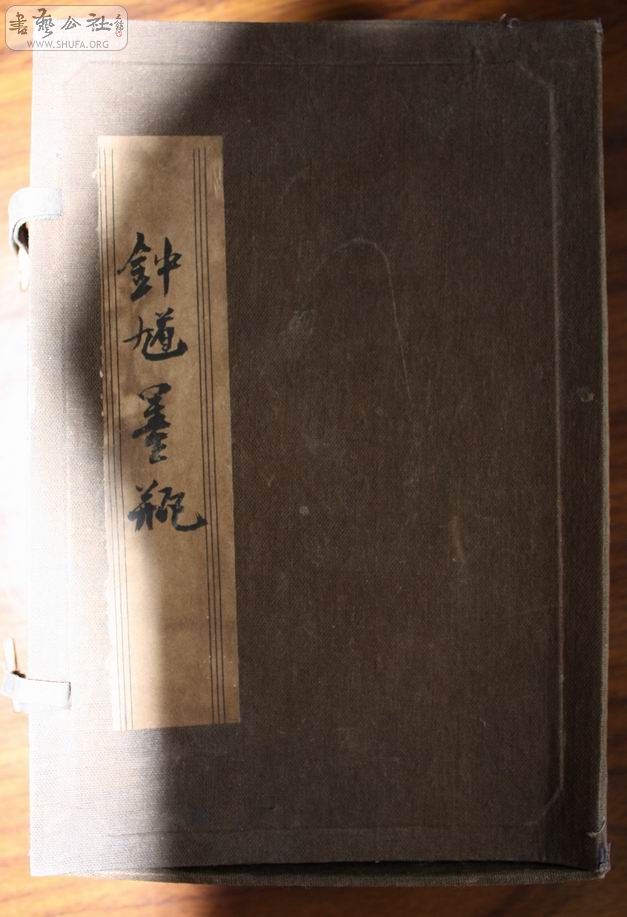 書藝公社
WWW.SHUFA.ORG
鈡馗墨瓶